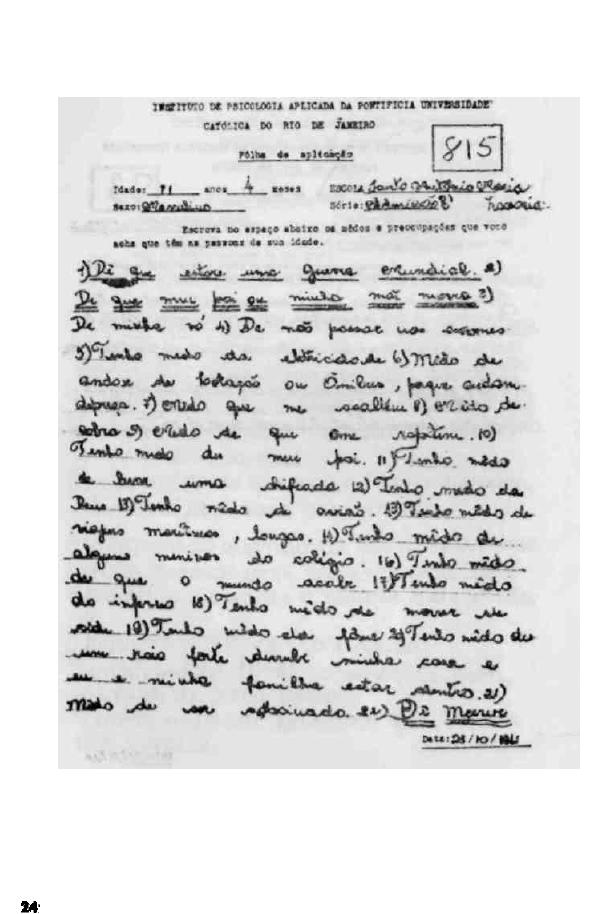 INSTITUTO DE PSICOLOGIA APLICADA DA PONTIFICIA UNIVERSIDADE
CATÓLICA DO RIO DE JANEIRO
815
Fôlha de aplicação
Idade: 11 anos 4 meses ESCOLA Santo Antônio Maria
Sexo: Masculino Série: Admissão Zacaria
Escreva no espaço abaixo os mêdos e preocupações que você
acha que têm as pessoas de sua idade.
1) Dê que estore uma guerra mundial. 2)
De que meu pai ou minha mãi morra 3)
De minha vó 4) De não passar nos exames
5) Tenho medo da eletricidade 6) Mêdo de
andar de lotação ou Ônibus, porque andam
depresa. 7) Mêdo que me 8) Mêdo de
cobra 9) Mêdo de que me raptem. 10)
Tenho medo du meu pai. 11) Tenho mêdo
de levar uma chifrada 12) Tenho medo da
Deus 13) Tenho mêdo de avião. 13) Tenho mêdo de
viagens marítimas, longas. 14) Tenho mêdo de
alguns meninos do colégio. 16) Tenho mêdo
de que o mundo acabe 17) Tenho mêdo
do inferno 18) Tenho mêdo de morrer de
sêde 19) Tenho mêdo da fome 20) Tenho mêdo du
um raio forte derrube minha casa e
eu e minha familha estar dentro. 21)
Mêdo de ser 22) Dê Morrer
Data: 23/10/
24